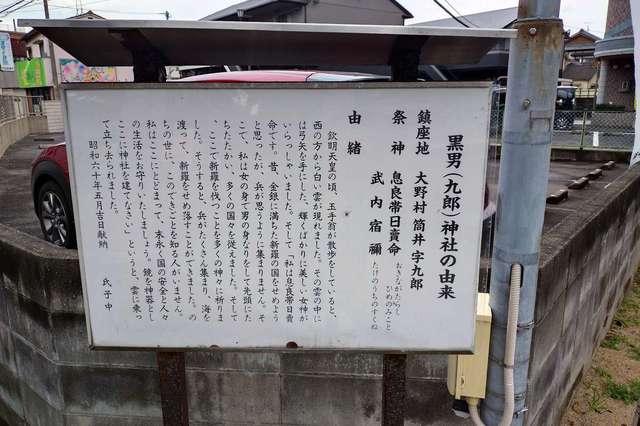 黒男(九郎)神社の由来
鎮座地 大野村筒井字九郎
祭神 息長帯日賣命
おきながたらし
ひめのみこと
武内宿禰
たけのうちのすくね
由緒
欽明天皇の頃、玉手翁が散歩をしていると、
西の方から白い雲が現れました。その雲の中に
は弓矢を手にした、輝くばかりに美しい女神が
いらっしゃいました。そして「私は息長帯日賣
命です。昔、金銀に満ちた新羅の国をせめよう
と思ったが、兵が思うように集まりません。そ
こで、私は女の身で男の身なりをして先頭にた
ちたたかい、多くの国々を従えました。そして
、ここで新羅を伐つことを多くの神々に祈りま
した。そうすると、兵がたくさん集まり、海を
渡って、新羅をせめ落すことができました。の
ちの世に、このできごとを知る人がいません。
私はここにとどまって、末永く国の安全と人々
の生活をお守りいたしましょう。鏡を神器とし
ここに神社を建てなさい」というと、雲に乗っ
て立ち去られました。
昭和六十年五月吉日献納
氏子中